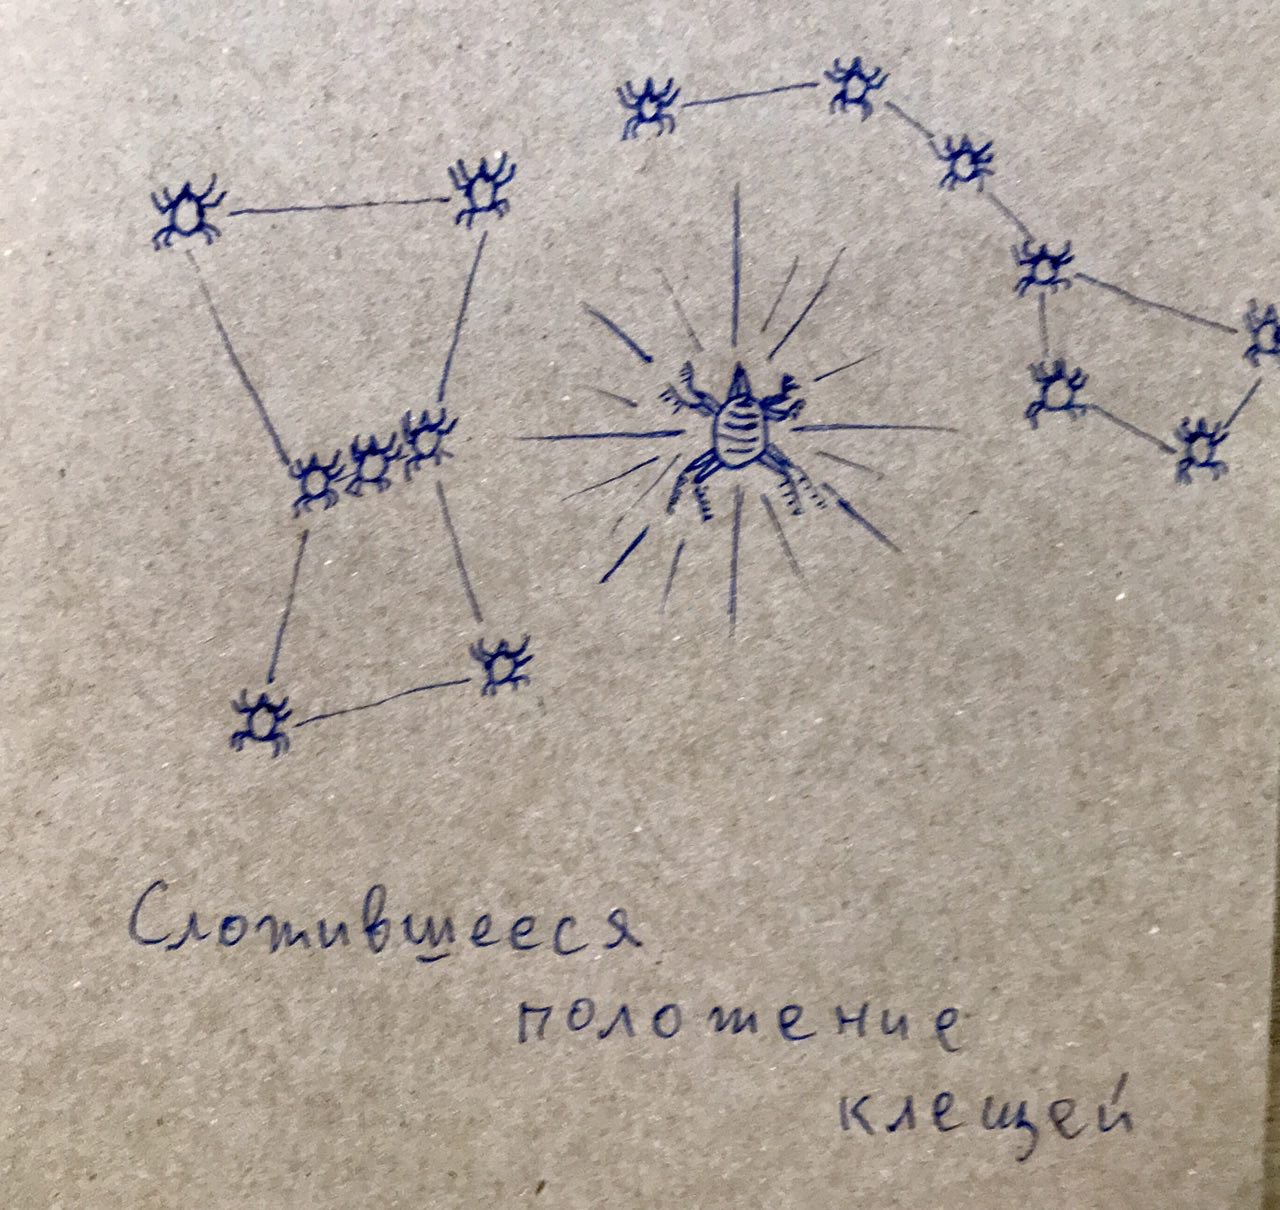 Сложившееся
положение
клещей